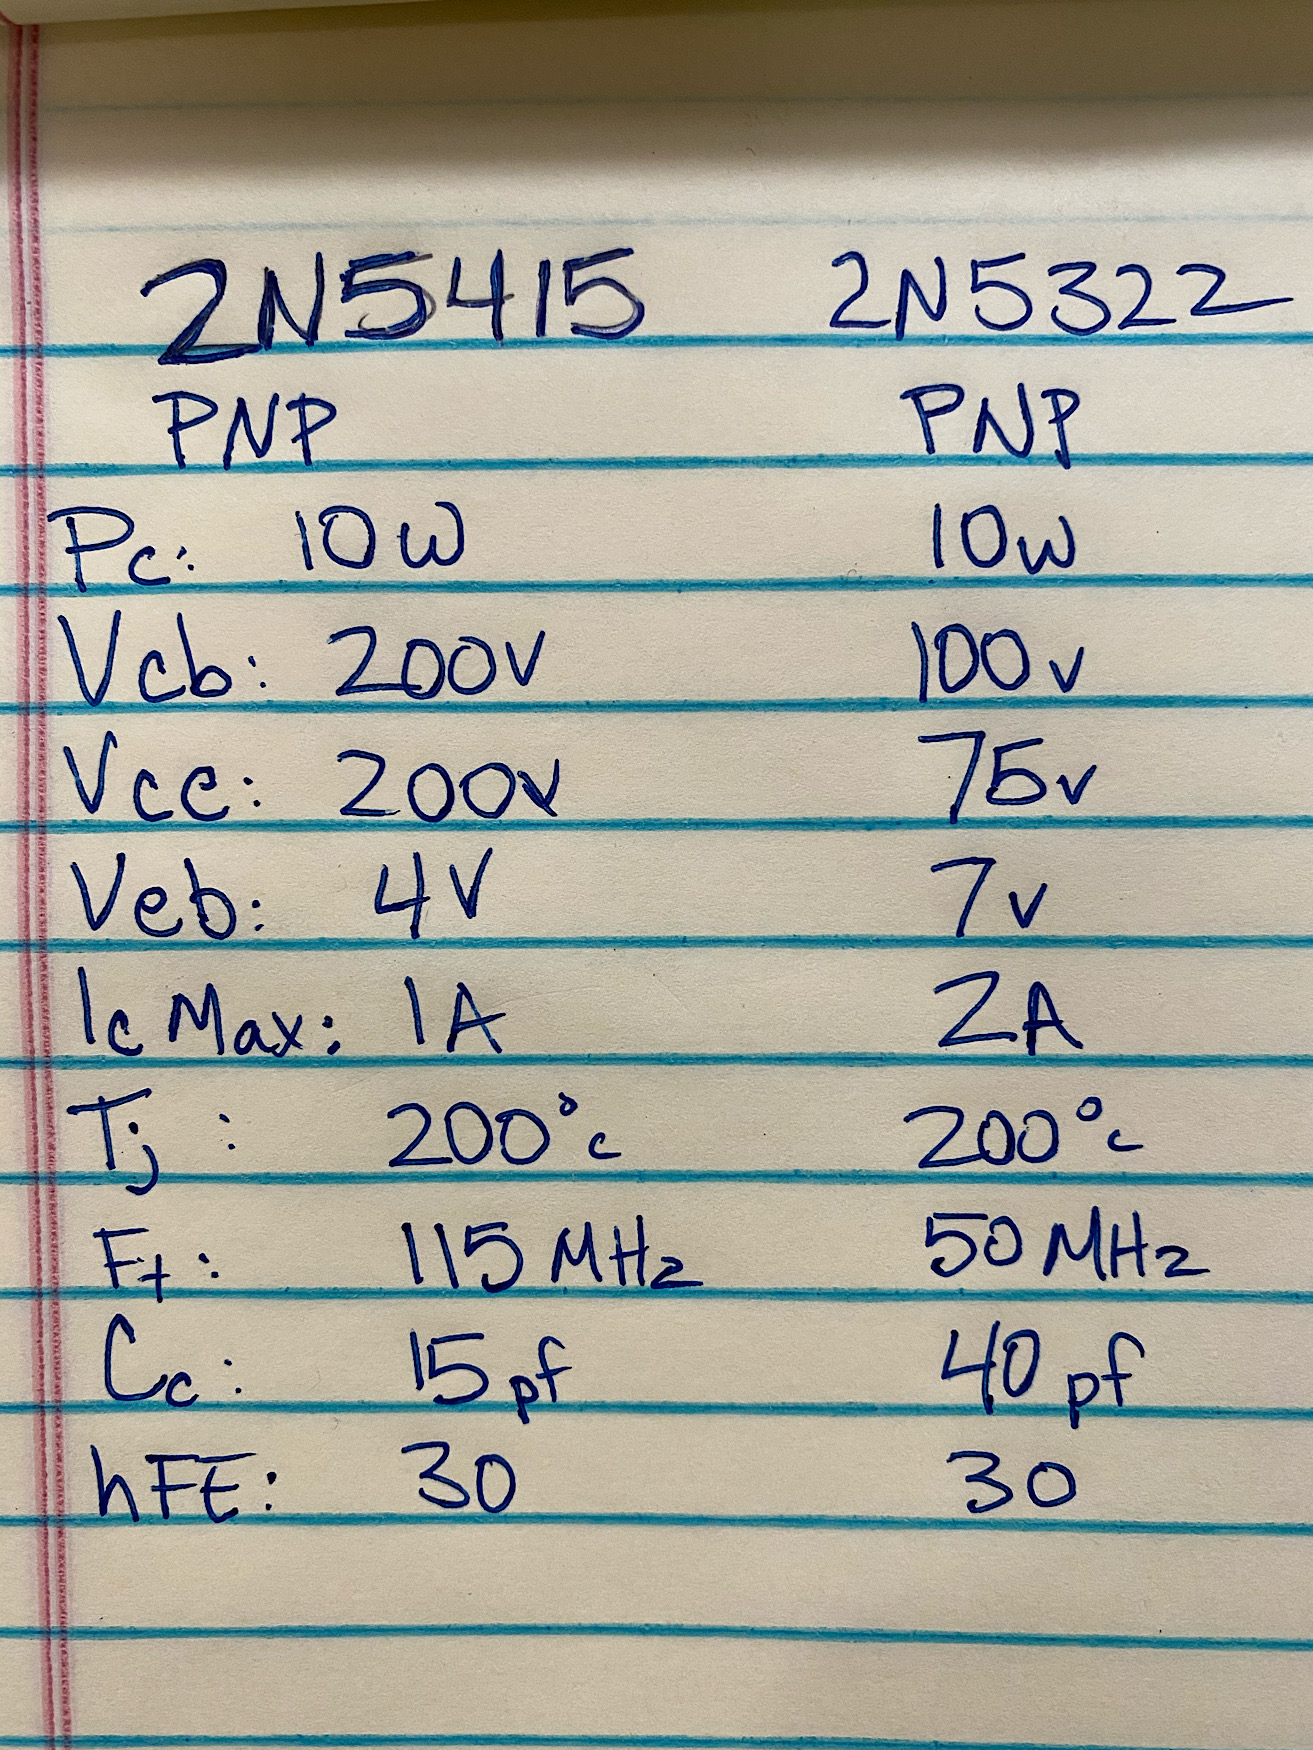 2N5415 2N5322
PNP PNP
Pc: 10W 10W
Vcb: 200V 100V
Vce: 200V 75V
Veb: 4V 7V
Ic Max: 1A 2A
Tj: 200°c 200°c
Ft: 115 MHz 50 MHz
Cc: 15pf 40pf
hFE: 30 30